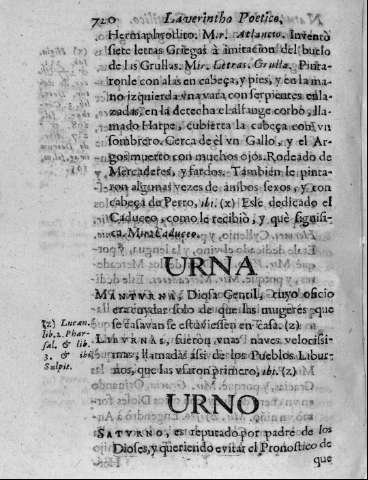 720 Laverintho Poetico,
Hermaphrodito. Mir. Atlancto. Inventò
siete letras Griegas à imitacion del buelo
de las Grullas. Mir. Letras. Grulla. Pinta-
ronle con alas en cabeça, y pies, y en la ma-
no izquierda vna vara con serpientes enla-
zadas, en la derecha el alfange corbo, lla-
mado Harpe, cubierta la cabeça con vn
sombrero. Cerca de èl vn Gallo, y el Ar-
gos muerto con muchos ojos. Rodeado de
Mercaderes, y fardos. Tambien le pinta-
ron algunas vezes de ambos sexos, y con
cabeça de Perro, ibi. (x) Esle dedicado el
Caduceo, como le recibiò, y què signifi-
ca. Mir. Caduceo.
URNA
MANTVRNA, Diosa Gentil, cuyo oficio
era cuydar solo de que las mugeres que
se casavan se estuviessen en casa. (z)
LIBVRNAS, fueron vnas naves velocissi-
mas, llamadas assi de los Pueblos Libur-
nos, que las vsaron primero, ibi. (z)
(z) Lucan.
lib. 2. Phar-
sal. & lib.
3. & ibi
Sulpit.
URNO
SATVRNO, es reputado por padre de los
Dioses, y queriendo evitar el Pronostico de
que